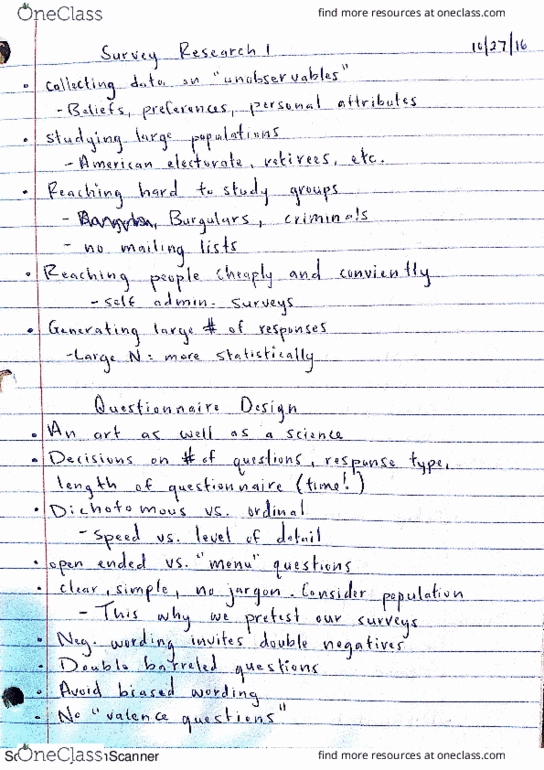 OneClass
find more resources at oneclass.com
Survey Research 1
10/27/16
• Collecting data on "unobservables"
- Beliefs, preferences, personal attributes
• Studying large populations
- American electorate, retirees, etc.
• Reaching hard to study groups
- Burgulars, criminals
- no mailing lists
• Reaching people cheaply and conviently
- self admin. surveys
• Generating large # of responses
- Large N: more statistically
Questionnaire Design
• An art as well as a science
• Decisions on # of questions, response type,
length of questionnaire (time!)
• Dichotomous vs. ordinal
- speed vs. level of detail
• open ended vs. "menu" questions
• clear, simple, no jargon. Consider population
- This why we pretest our surveys
• Neg. wording invites double negatives
• Double barreled questions
• Avoid biased wording
• No "valence questions"
OneClass
Scanner
find more resources at oneclass.com